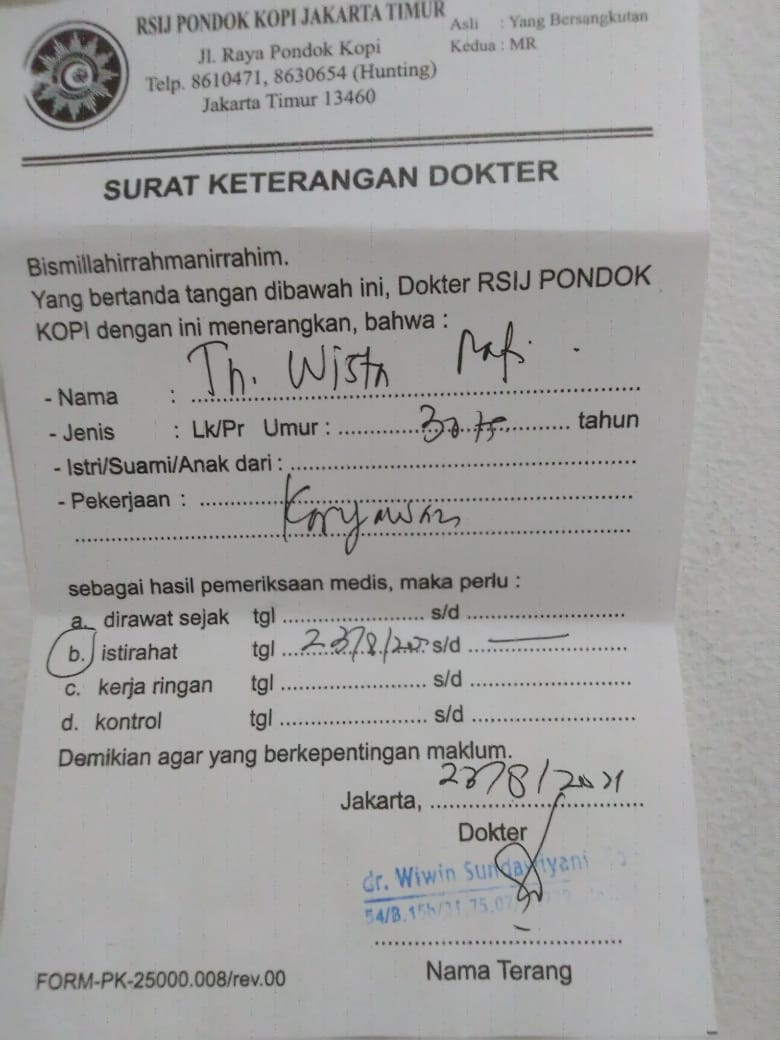 RSIJ PONDOK KOPI JAKARTA TIMUR
Jl. Raya Pondok Kopi
Telp. 8610471, 8630654 (Hunting)
Jakarta Timur 13460
Asli : Yang Bersangkutan
Kedua : MR
SURAT KETERANGAN DOKTER
Bismillahirrahmanirrahim.
Yang bertanda tangan dibawah ini, Dokter RSIJ PONDOK
KOPI dengan ini menerangkan, bahwa :
- Nama : Th. Wista
- Jenis : Lk/Pr Umur : 30 tahun
- Istri/Suami/Anak dari :
- Pekerjaan : Karyawan
sebagai hasil pemeriksaan medis, maka perlu :
a. dirawat sejak tgl s/d
b. istirahat tgl s/d
c. kerja ringan tgl s/d
d. kontrol tgl s/d
Demikian agar yang berkepentingan maklum.
Jakarta, 23/8/2021
Dokter
dr. Wiwin
Nama Terang
FORM-PK-25000.008/rev.00